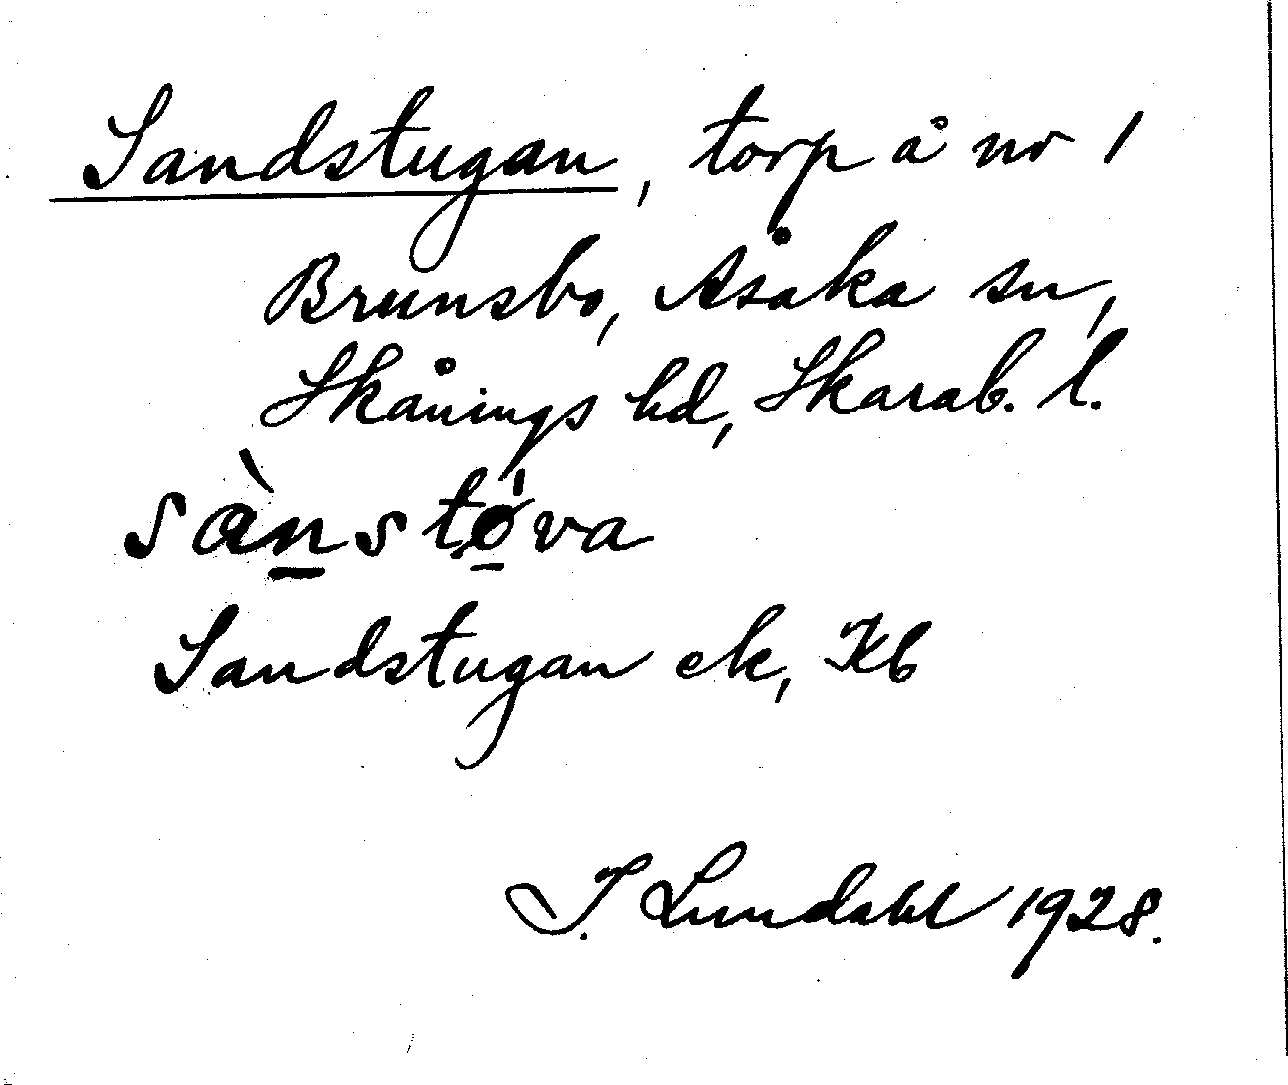 Sandstugan, torp å nr 1
Brunsbo, Åsaka sn,
Skånings hd, Skarab. l.
sàn̠stǿ̠va
Sandstugan ek, Kb
I. Lundahl 1928.